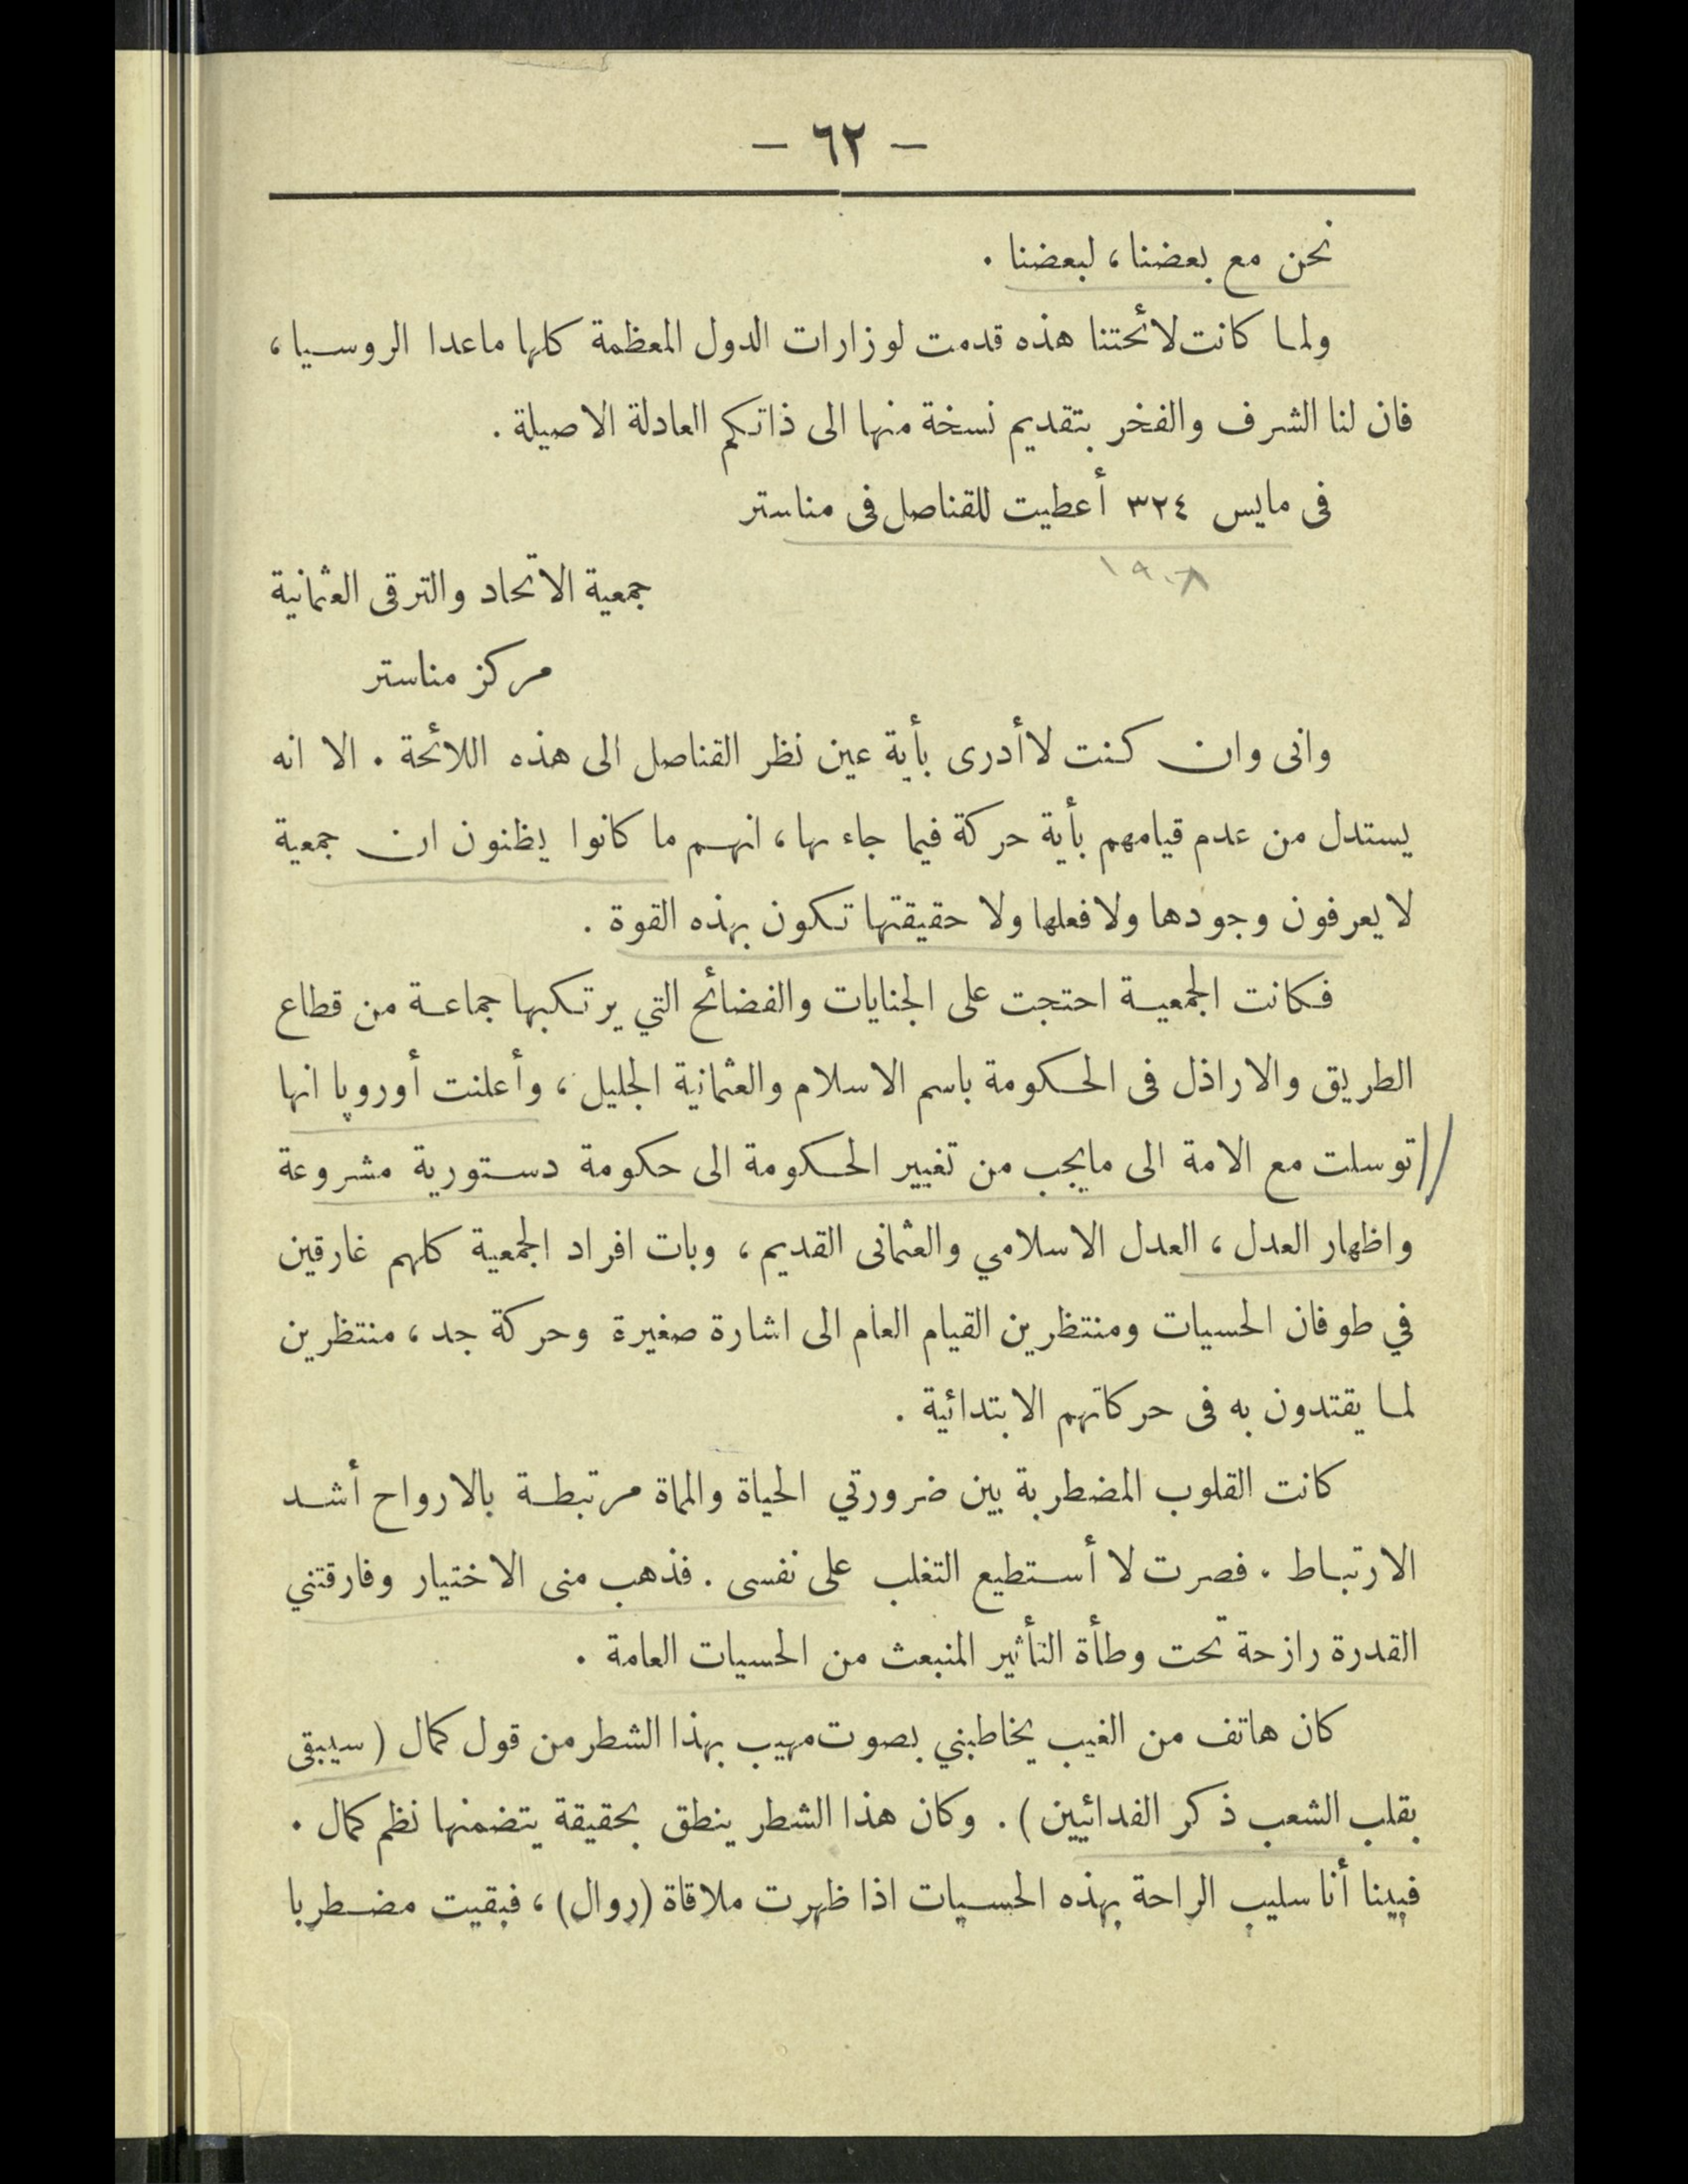 — ٦٢ —
نحن مع بعضنا، لبعضنا .
ولما كانت لائحتنا هذه قدمت لوزارات الدول المعظمة كلها ماعدا الروسيا،
فان لنا الشرف والفخر بتقديم نسخة منها الى ذاتكم العادلة الاصيلة .
فى مايس ٣٢٤ أعطيت للقناصل فى مناستر
١٩٠٨
جمعية الاتحاد والترقى العثمانية
مركز مناستر
وانى وان كنت لاأدرى بأية عين نظر القناصل الى هذه اللائحة . الا انه
يستدل من عدم قيامهم بأية حركة فيما جاء بها، انهم ما كانوا يظنون ان جمعية
لا يعرفون وجودها ولا فعلها ولا حقيقتها تكون بهذه القوة .
فكانت الجمعية احتجت على الجنايات والفضائح التي يرتكبها جماعة من قطاع
الطريق والاراذل فى الحكومة باسم الاسلام والعثمانية الجليل، وأعلنت أوروپا انها
توسلت مع الامة الى مايجب من تغيير الحكومة الى حكومة دستورية مشروعة
واظهار العدل، العدل الاسلامي والعثمانى القديم، وبات افراد الجمعية كلهم غارقين
في طوفان الحسيات ومنتظرين القيام العام الى اشارة صغيرة وحركة جد، منتظرين
لما يقتدون به فى حركاتهم الابتدائية .
كانت القلوب المضطربة بين ضرورتي الحياة والمماة مرتبطة بالارواح أشد
الارتباط . فصرت لا أستطيع التغلب على نفسى . فذهب منى الاختيار وفارقتني
القدرة رازحة تحت وطأة التأثير المنبعث من الحسيات العامة .
كان هاتف من الغيب يخاطبني بصوت مهيب بهذا الشطر من قول كمال ( سيبقى
بقلب الشعب ذكر الفدائيين ) . وكان هذا الشطر ينطق بحقيقة يتضمنها نظم كمال .
فبينا أنا سليب الراحة بهذه الحسيات اذا ظهرت ملاقاة (روال)، فبقيت مضطربا